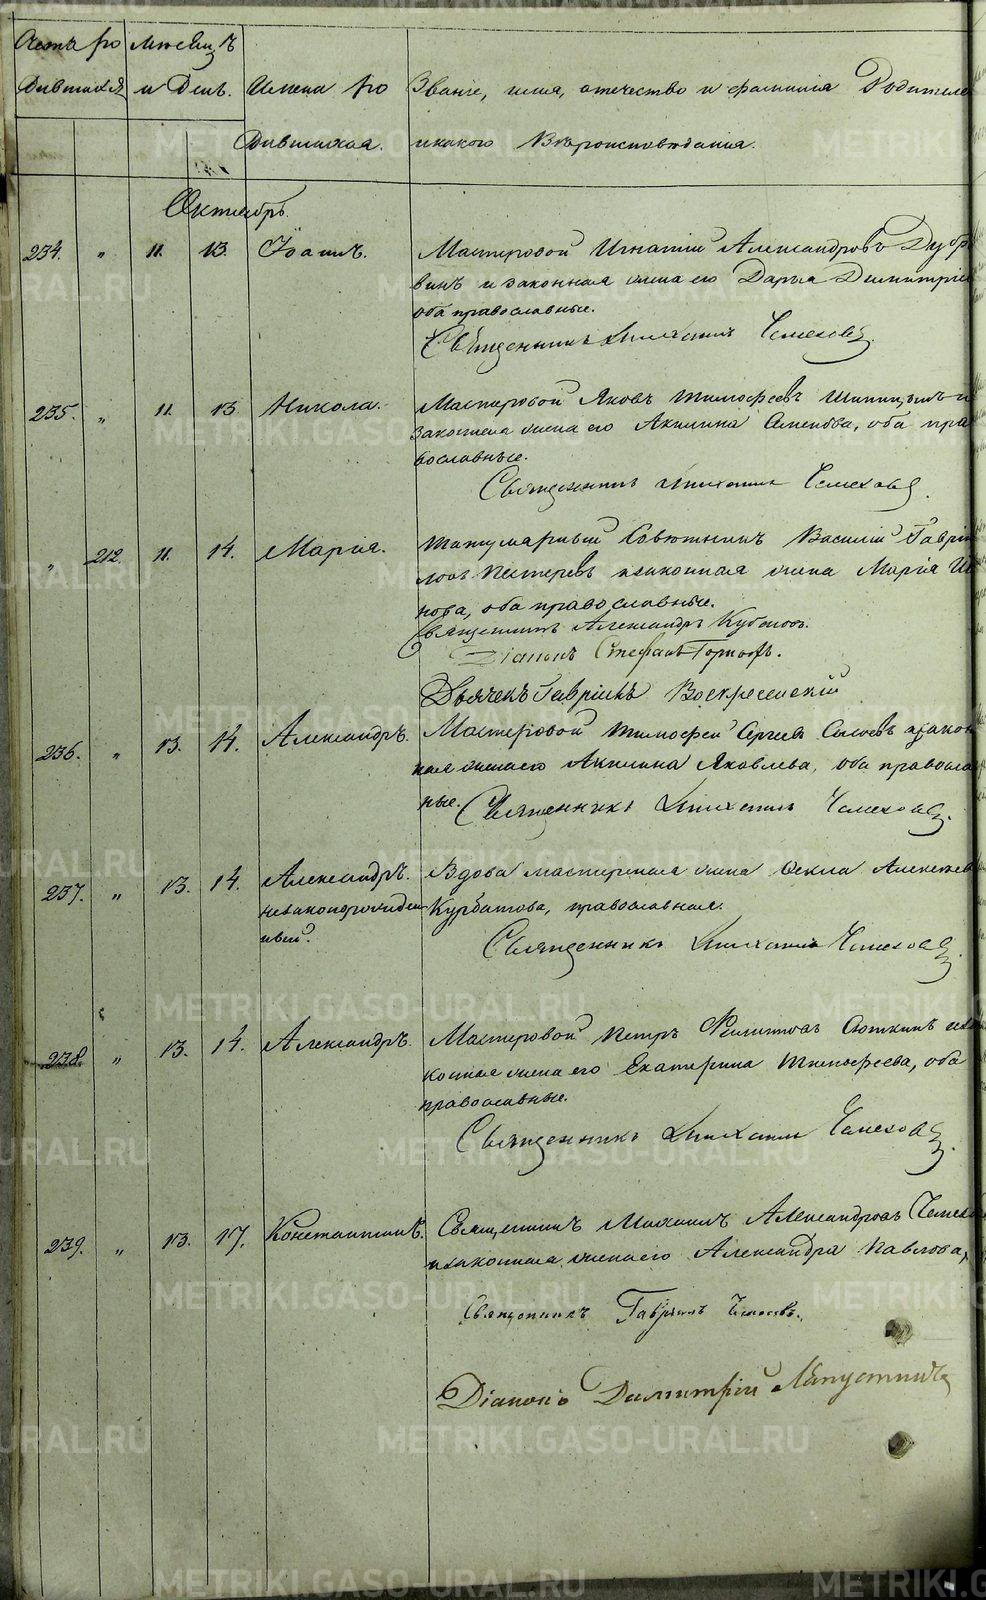 Счетъ ро Мѣсяцъ
дившихся и День. Имена ро Званіе, имя, отечество и фамилія Родителе
дившихся. и какого Вѣроисповѣданія.
Октябрь.
234. " 11. 13. Іоаннъ. Мастеровой Игнатій Александровъ
винъ и законная жена его Дарья Димитріе
оба православные.
Священникъ Михаилъ
235. " 11. 13. Никола. Мастеровой Яковъ Тимофеевъ
законная жена его Акилина оба пра
вославные.
Священникъ Михаилъ
" 212. 11. 14. Марія. Василій Гаврі
ловъ и законная жена Марія Ива
нова, оба православные.
Священникъ Александръ
Діаконъ Стефанъ
Дьячекъ Гавріилъ Воскресенскій
236. " 13. 14. Александръ. Мастеровой Тимофей Сергеевъ и закон
ная жена его Акилина Яковлева, оба православ
ные. Священникъ Михаилъ
237. " 13. 14. Александръ. Вдова мастерская жена Фекла Алексеева
незаконорожден Курбатова, православная.
ный. Священникъ Михаилъ
238. " 13. 14. Александръ. Мастеровой Петръ Филиповъ и за
конная жена его Екатерина Тимофеева, оба
православные.
Священникъ Михаилъ
239. " 13. 17. Константинъ. Священникъ Михаилъ Александровъ
и законная жена его Александра Павлова,
Священникъ Гавріилъ
Діаконъ Димитрій
METRIKI.GASO-URAL.RU